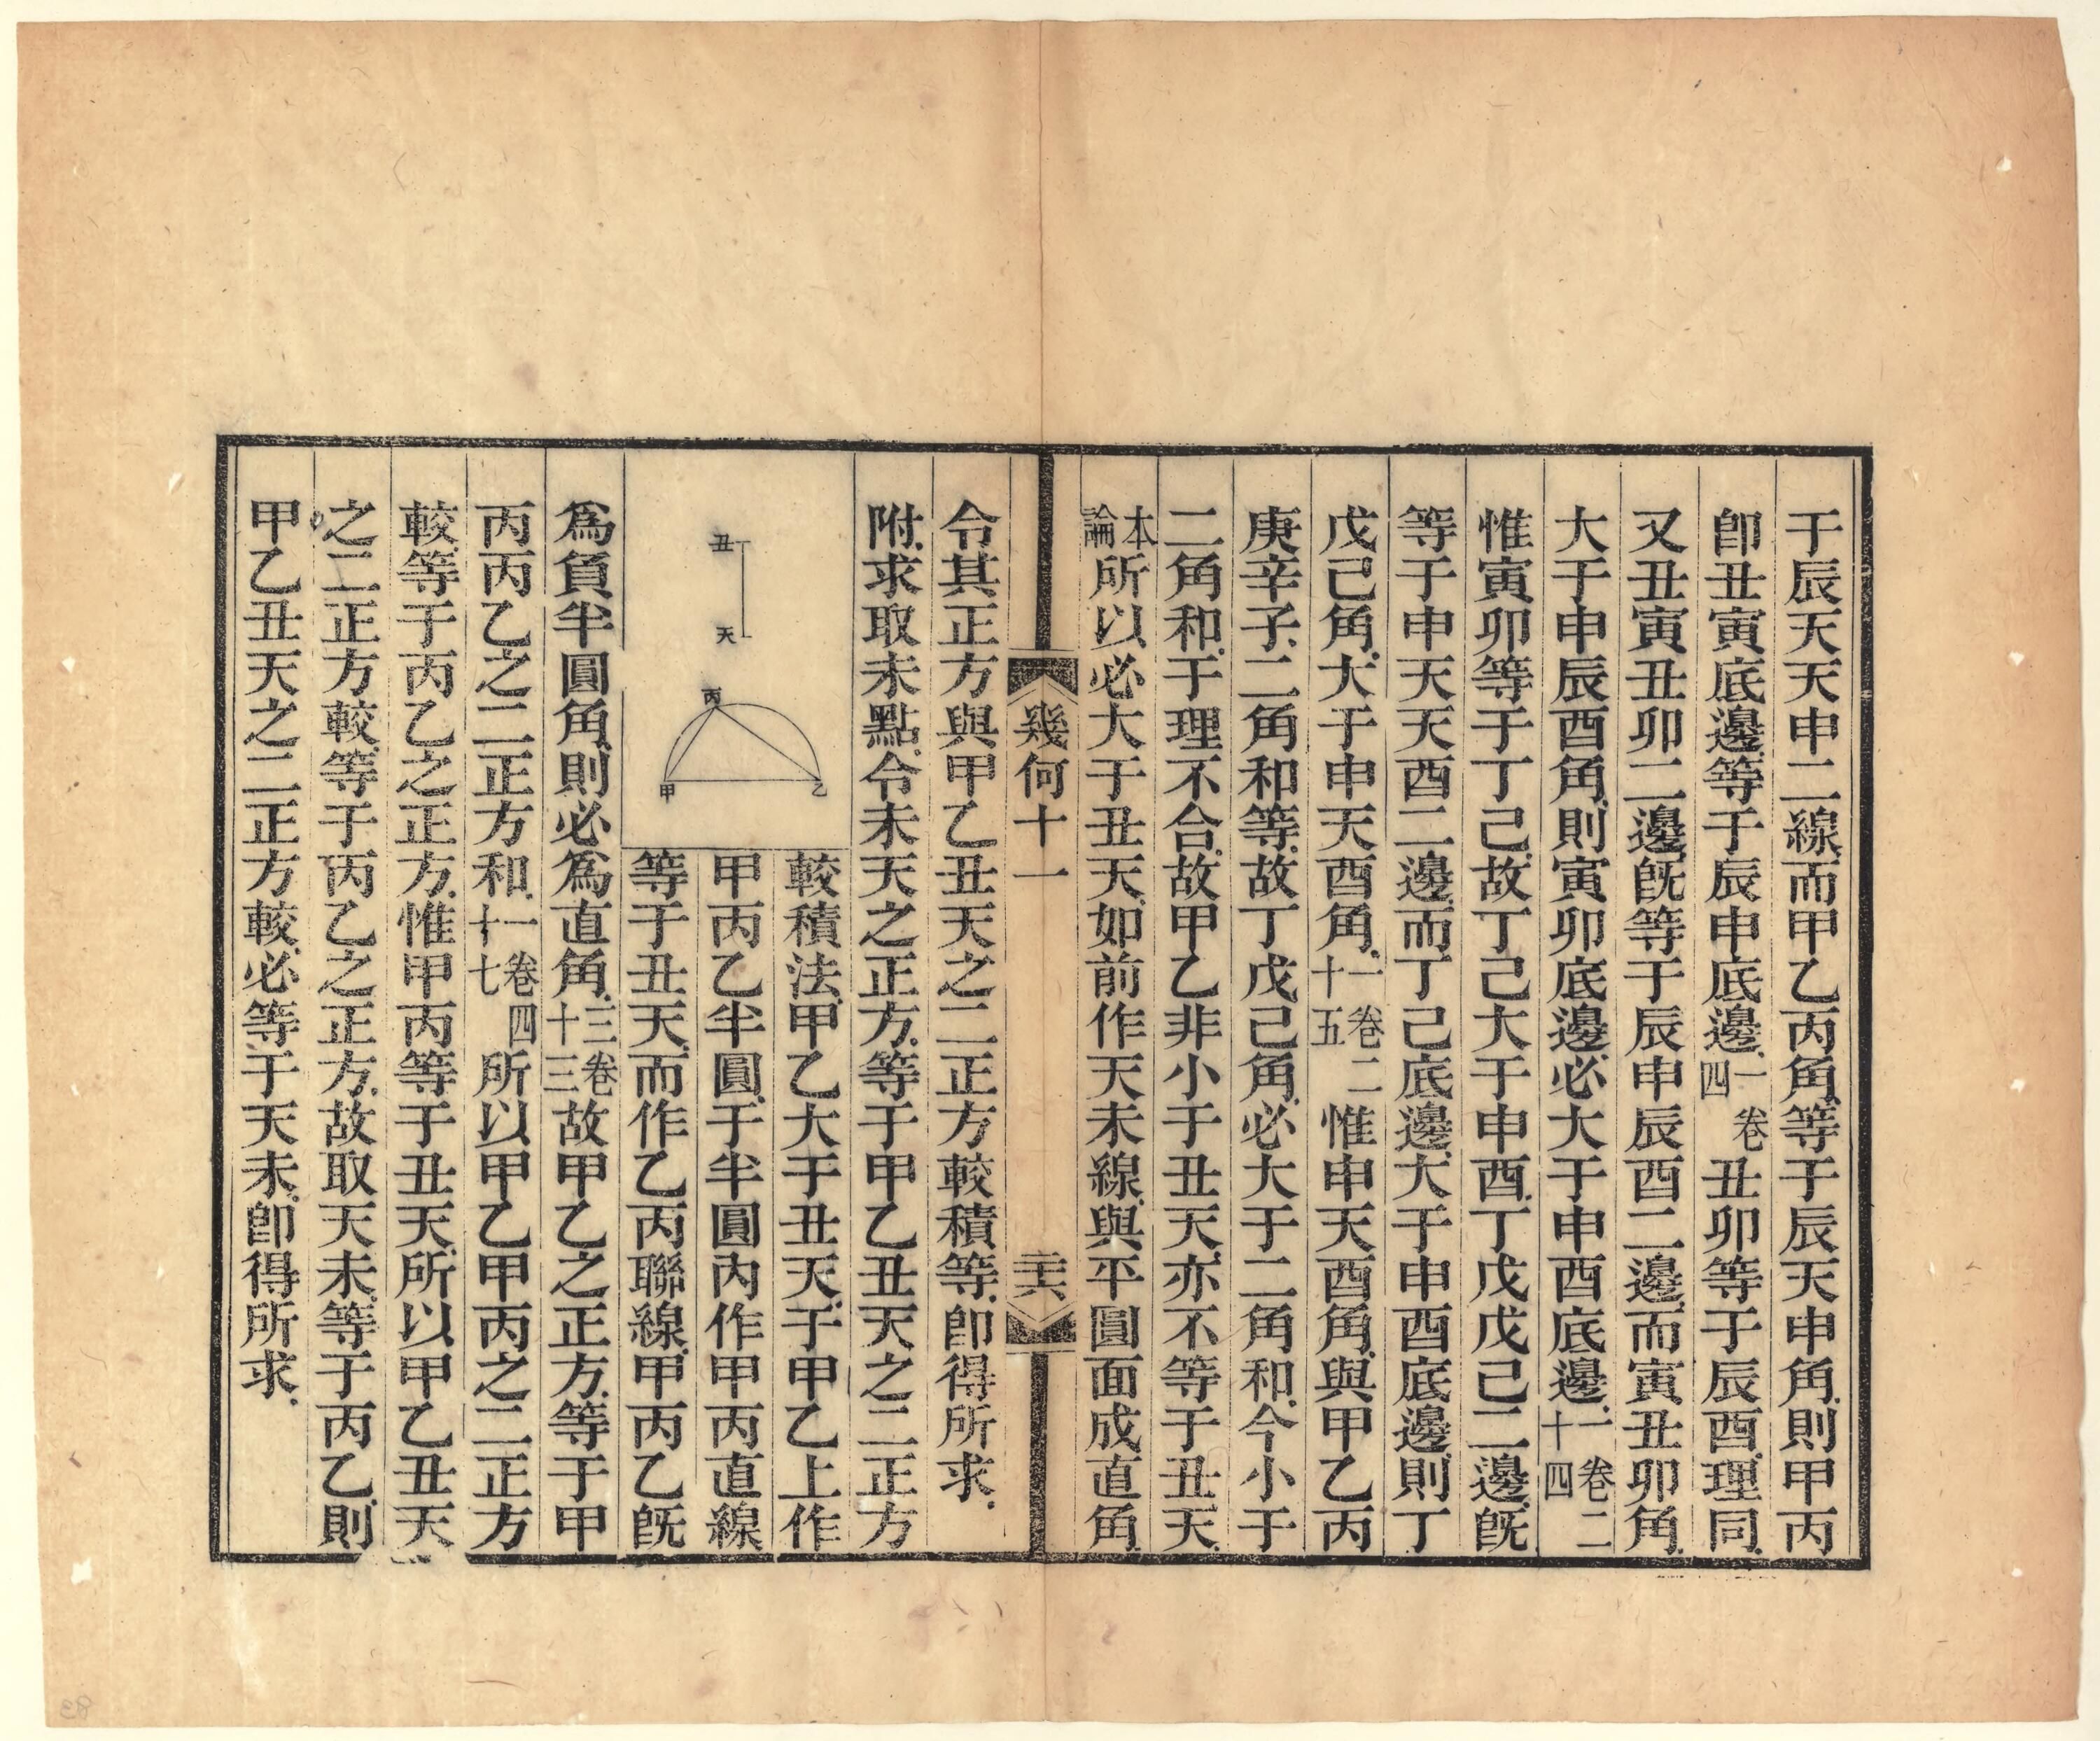 于辰天天申二線而甲乙丙角等于辰天申角則甲丙
卽丑寅底邊等于辰申底邊一卷四丑卯等于辰酉理同
又丑寅丑卯二邊旣等于辰申辰酉二邊而寅丑卯角
大于申辰酉角則寅卯底邊必大于申酉底邊一卷二十四
惟寅卯等于丁己故丁己大于申酉丁戊戊己二邊旣
等于申天天酉二邊而丁己底邊大于申酉底邊則丁
戊己角大于申天酉角一卷二十五惟申天酉角與甲乙丙
庚辛子二角和等故丁戊己角必大于二角和今小于
二角和于理不合故甲乙非小于丑天亦不等于丑天
本論所以必大于丑天如前作天未線與平圓面成直角
幾何十一
二十六
令其正方與甲乙丑天之二正方較積等卽得所求
附求取未點令未天之正方等于甲乙丑天之二正方
丑
天
丙
甲
乙
較積法甲乙大于丑天于甲乙上作
甲丙乙半圓于半圓內作甲丙直線
等于丑天而作乙丙聯線甲丙乙旣
爲負半圓角則必爲直角三卷三十三故甲乙之正方等于甲
丙丙乙之二正方和一卷四十七所以甲乙甲丙之二正方
較等于丙乙之正方惟甲丙等于丑天所以甲乙丑天
之二正方較等于丙乙之正方故取天未等于丙乙則
甲乙丑天之二正方較必等于天未卽得所求
83